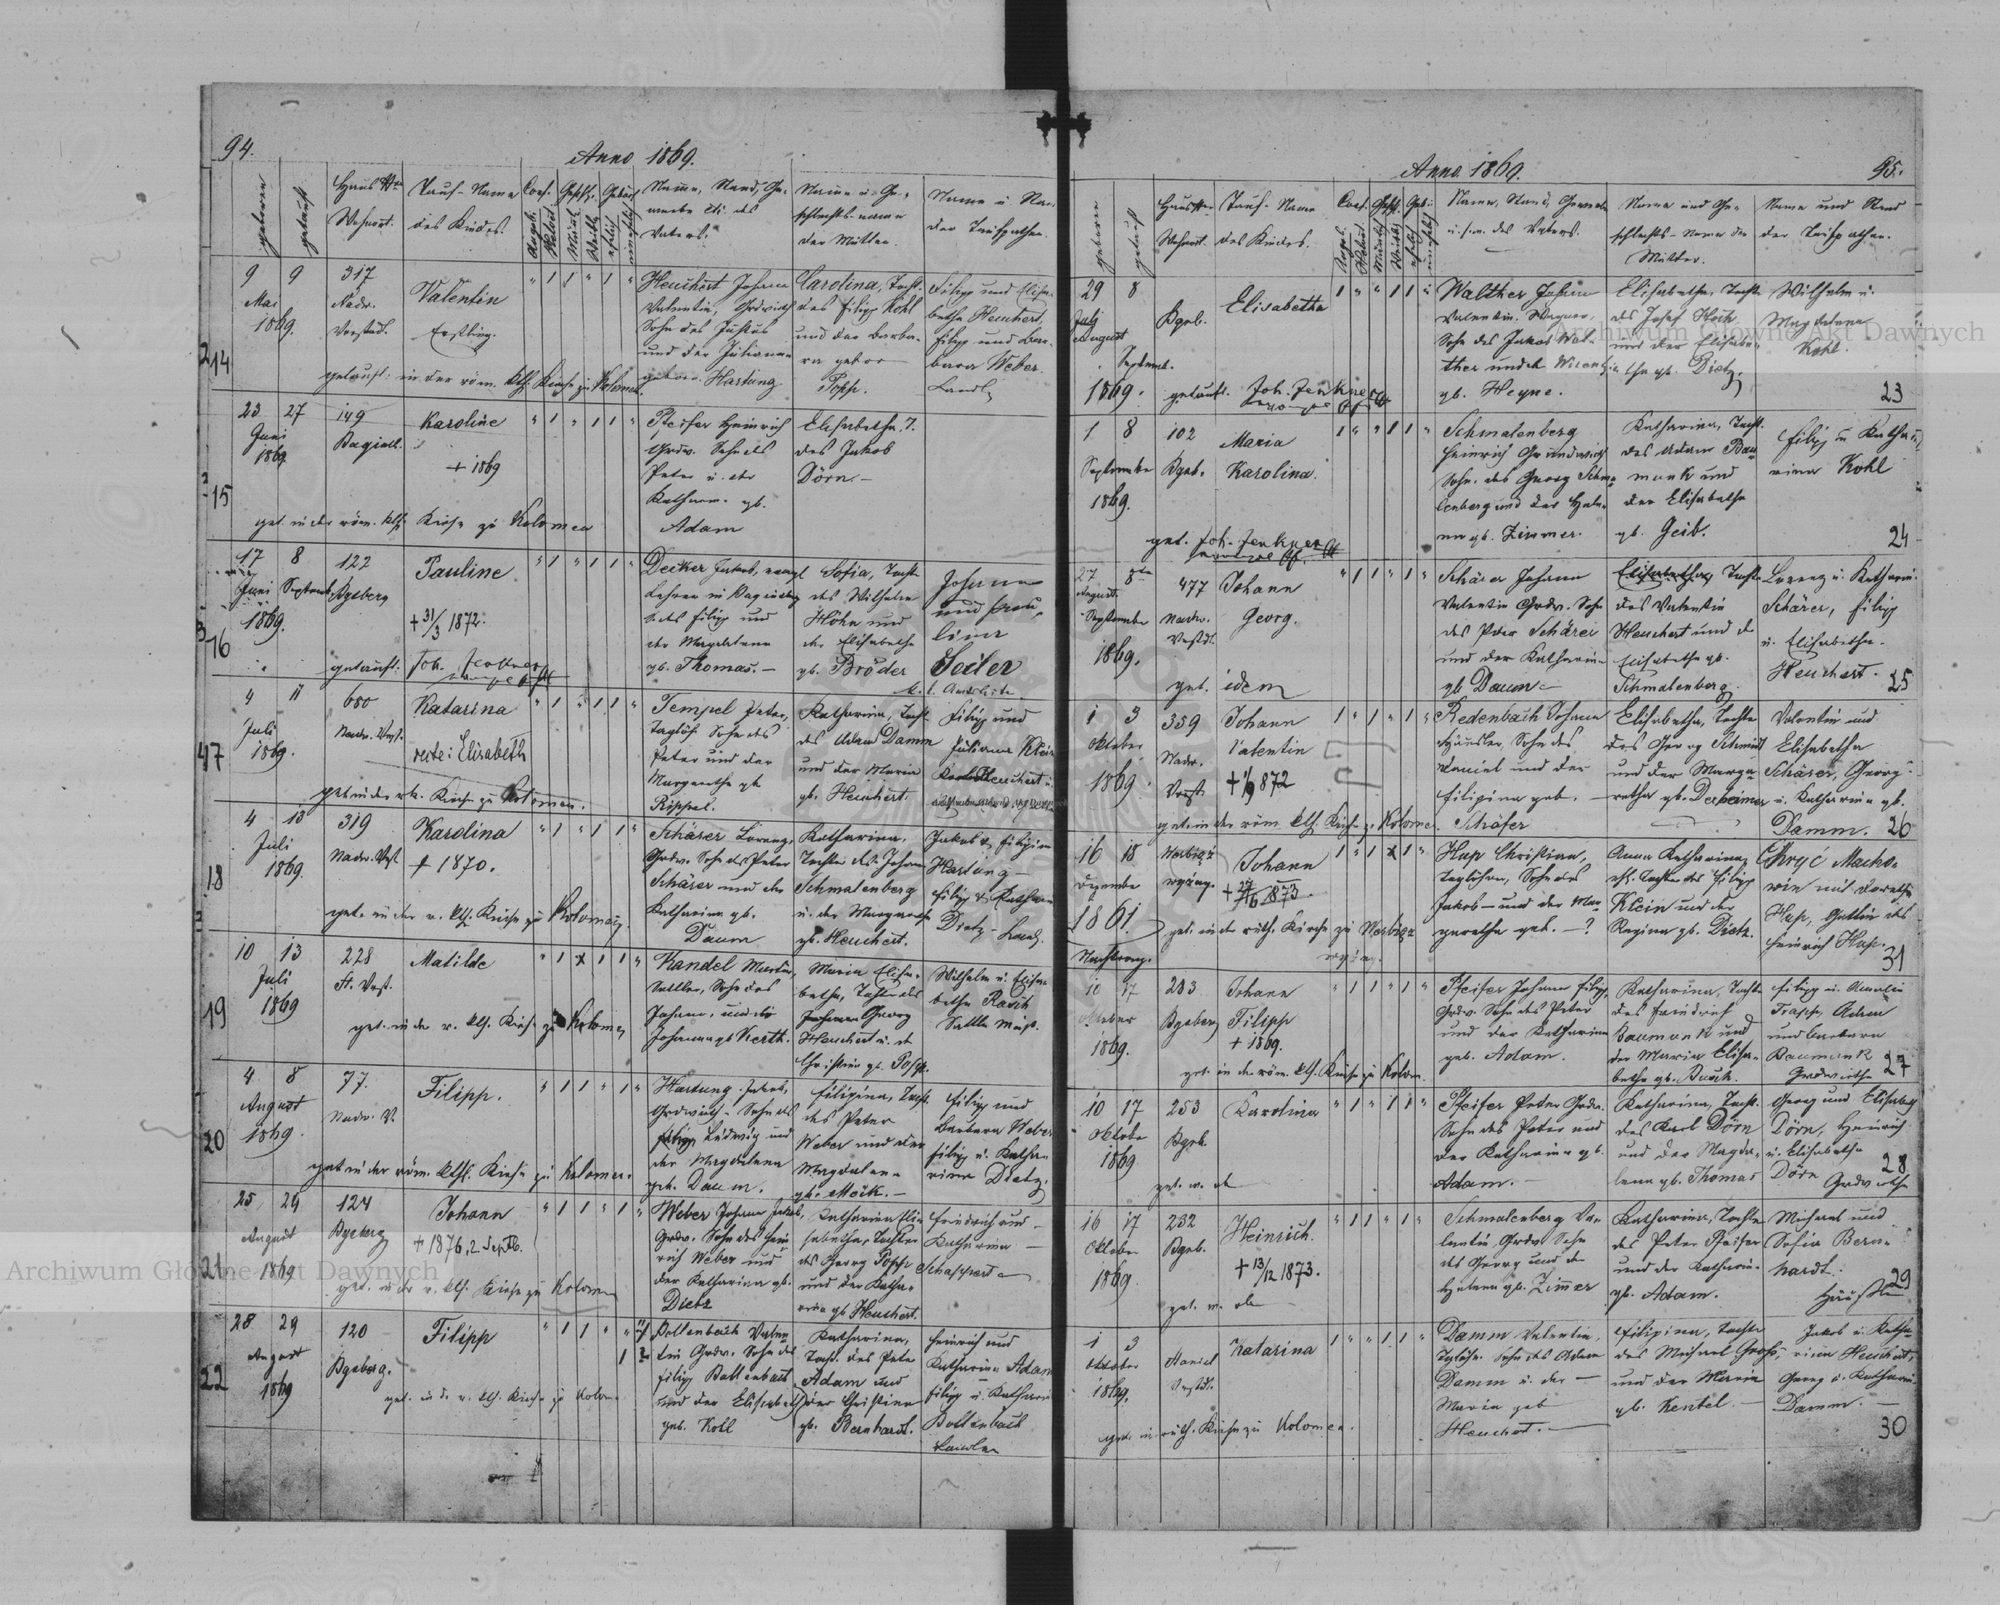 94.
Anno 1869.
geboren
getauft
Haus Nro
Wohnort.
Tauf-Name
des Kindes.
Conf.
Geschl.
Geburt
Name, Stand, Ge-
werbe etc. des
Vaters.
Name u. Ge-
schlechtsname
der Mutter.
Name u. Stan
der Taufpathen.
14
9 9
Mai
1869.
317
Nadw.
Vorstadt.
Valentin
Erstling.
Heuchert Johann
Valentin, Grdwirth
Sohn des Justus
und der Juliana
gebor. Hartung
Carolina, Tocht.
des Filipp Kohl
und der Barba-
ra gebor
Popp.
Filipp und Elisa-
betha Heuchert.
Filipp und Bar-
bara Weber.
Landl
getauft: in der röm. kth. Kirche zu Kolomea.
15
23 27
Juni
1869
149
Baginsb.
Karoline
+ 1869
Pfeifer Heinrich
Grdw. Sohn des
Peter u. der
Katharin. gb.
Adam
Elisabetha, T.
des Jakob
Dörn.-
get. in der röm. kth. Kirche zu Kolomea
16
17 8
Juni Septemb.
1869.
122
Bgsberg
Pauline
+ 31/3 1872.
Decker Jakob, evangl
Lehrer in Baginsberg
S. des Filipp und
der Magdalena
gb. Thomas.-
Sofia, Tocht
des Wilhelm
Höhn und
der Elisabetha
gb. Bröder
Johann
und Pau-
lina
Seiler
k. k. Amtsleute
getauft: Joh. Jenkner
17
4 11
Juli
1869.
680
Nadw. Vorst.
Katarina
recte: Elisabeth
Tempel Peter,
Taglöh. Sohn des
Peter und der
Margaretha gb
Rippel.
Katharina, Tocht.
des Adam Damm
und der Maria
gb. Heuchert.
Filipp und
Juliana Klein
Karl Heuchert u.
get. in der r. k. Kirche zu Kolomea.
18
4 13
Juli
1869.
319
Nadw. Vrst
Karolina
+ 1870.
Schärer Lorenz,
Grdw. Sohn des Peter
Schärer und der
Katharina gb.
Daum
Katharina,
Tochter des Johann
Schmalenberg
u. der Margareth
gb. Heuchert.
Jakob & Filipina
Hartung -
Filipp & Katharin
Dietz - Landl.
get. in der r. kth. Kirche zu Kolomea
19
10 13
Juli
1869
228
St. Vrst.
Matilde
Kandel Martin,
Sattler, Sohn des
Johann, und der
Johanna gb Kerth.
Maria Elisa-
betha, Tochter des
Georg
Heuchert u. der
Christina gb. Popp.
Wilhelm u. Elisa-
betha
get. in der r. kth. Kirche zu Kolomea
20
4 8
August
1869.
77.
Nadw. V.
Filipp.
Hartung Jakob,
Grdwirth - Sohn des
Ludwig und
der Magdalena
geb. Daum.
Filipina, Tocht
des Peter
Weber und der
Magdalena
gb. Möik.-
Filipp und
Barbara Weber
Filipp u. Katha-
rina Dietz.
get. in der röm. kthl. Kirche zu Kolomea.
21
25 29
August
1869
124
Bgsberg
Johann
+ 1876, 2. Septb.
Weber Johann Jakob,
Grdw. Sohn des Hein
rich Weber und
der Katharina gb.
Dietz
Katharina Eli-
sabetha, Tochter
des Georg Popp
und der Katha-
rina gb Heuchert.
Friedrich und -
Katharina -
Schappert -
get. in der r. kth. Kirche zu Kolomea
22
28 29
August
1869
120
Bgsberg.
Filipp
Bollenbach Valen
tin Grdw. Sohn des
Filipp Bollenbach
und der Elisabeth
geb. Kohl
Katharina,
Tocht. des Peter
Adam und
der Christina
gb. Bernhardt.
Heinrich und
Katharina Adam
Filipp u. Katharin
Bollenbach
Landler
get. in der r. kth. Kirche zu Kolomea
Anno 1869.
95.
geboren
getauft
Haus Nro
Wohnort.
Tauf-Name
des Kindes.
Conf.
Geschl.
Geb.
Name, Stand, Gewerbe
u.s.w. des Vaters.
Name und Ge-
schlechts-Name der
Mutter.
Name und Stand
der Taufpathen.
29 8
Juli
August
Septemb.
1869.
Bgsb.
Elisabetha
Walther Johann
Valentin. Wagner,
Sohn des Jakob Wal-
ther und der
gb. Heyne.
Elisabetha, Tocht
des Josef
und der Elisabe-
tha gb. Dietz.
Wilhelm u.
Magdalena
Kohl.
getauft. Joh. Jenkner
23
1 8
September
1869.
102
Bgsb.
Maria
Karolina.
Schmalenberg
Heinrich Grundwirth
Sohn des Georg Schma-
lenberg und der Hele-
na gb. Zimmer.
Katharina, Tocht.
des Adam Bau
mank und
der Elisabetha
gb. Geib.
Filipp u. Katha-
rina Kohl
get. Joh. Jenkner
24
27 8
August
September
1869.
477
Nadw.
Vrstdt.
Johann
Georg.
Schärer Johann
Valentin Grdw. Sohn
des Peter Schärer
und der Katharina
gb Daum -
Elisabetha, Tochter
des Valentin
Heuchert und der
Elisabetha gb.
Schmalenberg.
Lorenz u. Katharin.
Schärer, Filipp
u. Elisabetha.
Heuchert.
get. idem
25
1 3
Oktober
1869.
359
Nadw.
Vrst.
Johann
Valentin
+ 1/9 872
Redenbach Johann
Häusler, Sohn des
Daniel und der
Filipina geb. -
Schäfer
Elisabetha, Tochter
des Georg Schmidt
und der Marga
retha gb. Derheimer
Valentin und
Elisabetha
Schärer, Georg
u. Katharina gb.
Damm.
get. in der röm. kth. Kirche zu Kolomea.
26
16 18
Dezember
1861
Nachtrag.
Johann
Hup Christian,
Taglöhner, Sohn des
Jakob - und der Mar
garetha geb. - ?
Anna Katharina,
Tochter des Filipp
Klein und der
Regina gb. Dietz.
Hryć Macho-
win mit Dorothe
Hup, Gattin des
Heinrich Hup.
get. in der ruth. Kirche zu
31
10 17
Oktober
1869.
283
Bgsberg
Johann
Filipp
+ 1869.
Pfeifer Johann Filipp,
Grdw. Sohn des Peter
und der Katharina
geb. Adam.
Katharina, Tochter
des Friedrich
Baumank und
der Maria Elisa-
betha gb. Busch.
Filipp u. Amalie
Trapp, Adam
und Barbara
Baumank
Grdwirthe
get. in der röm. kth. Kirche zu Kolom.
27
10 17
Oktober
1869
253
Bgsb.
Karolina
Pfeifer Peter Grdw.
Sohn des Peter und
der Katharina gb.
Adam. -
Katharina, Tocht.
des Karl Dörn
und der Magda-
lena gb. Thomas
Georg und Elisabeth
Dörn, Heinrich
u. Elisabetha
Dörn
Grdwirthe
get. w. ob
28
16 17
Oktober
1869
232
Bgsb.
Heinrich.
+ 13/12 1873.
Schmalenberg Va-
lentin Grdw. Sohn
des Georg und der
Helena gb. Zimmer
Katharina, Tochter
des Peter Pfeifer
und der Katharin.
gb. Adam.
Michael und
Sofia Bern-
hardt.
get. w. oben
29
1 3
Oktober
1869.
Vrstdt.
Katarina
Damm Valentin,
Taglöhn. Sohn des Adam
Damm u. der -
Maria geb
Heuchert. -
Filipina, Tochter
des Michael Gross,
und der Maria
gb. Kentel. -
Jakob u. Katha-
rina Heuchert,
Georg u. Katharin.
Damm. -
get. in ruth. Kirche zu Kolomea.
30
Archiwum Główne Akt Dawnych
Archiwum Główne Akt Dawnych